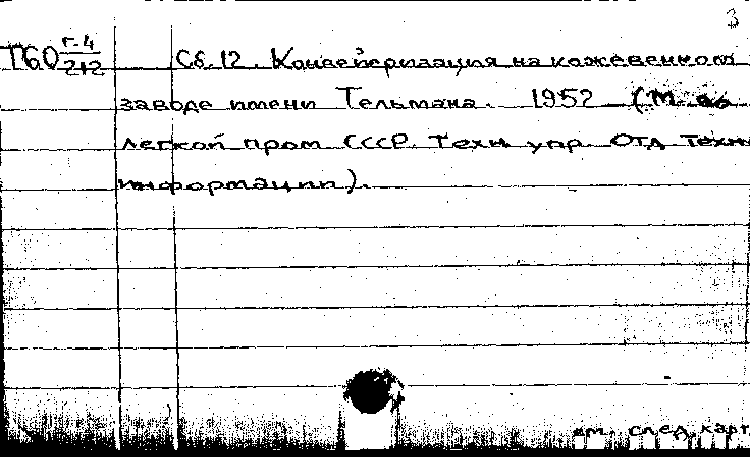 3
Т60 г-4/212 Сб. 12. Конвейеризация на кожевенном
заводе имени Тельмана. 1952 (М-во
легкой пром СССР. Техн. упр. Отд техн
информации).
см. след. карт